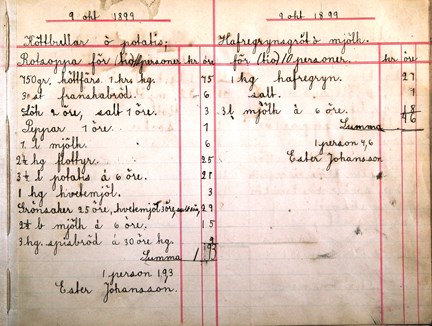 9 okt 1899
Köttbullar o potatis;
Rotsoppa för 10 personer. kr öre
750gr. köttfärs 1 krs kg. 75
3 st franskabröd. 6
Lök 2 öre, salt 1 öre. 3
Peppar 1 öre. 1
1 l mjölk. 6
2½ hg flottyr. 25
3½ l potatis á 6 öre. 21
1 hg hvetemjöl. 3
Grönsaker 25 öre, hvetemjöl 3 öre, 29
2½ l mjölk á 6 öre. 15
3 hg. spisbröd á 30 öre kg. 9
Summa 1 93
1 person 19,3
Ester Johansson.
9 okt 1899
Hafregrynsgröt o mjölk.
för (tio) 10 personer. kr öre
1 kg hafregryn. 27
salt. 1
3 l mjölk á 6 öre. 18
Summa 46
1 person 4,6
Ester Johansson